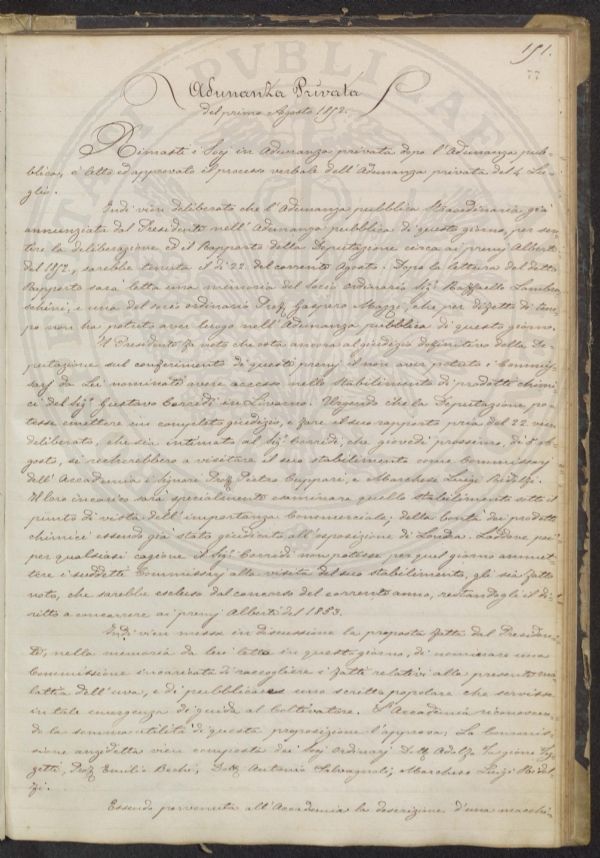 191.
77
Adunanza Privata
del primo Agosto 1852.
Rimasti i Socj in Adunanza privata dopo l'Adunanza pub-
blica, è letto ed approvato il processo verbale dell'Adunanza privata del 4 Lu-
glio.
Indi vien deliberato che l'Adunanza pubblica Straordinaria già
annunziata dal Presidente nell'Adunanza pubblica di questo giorno, per sen-
tire la deliberazione ed il Rapporto della Deputazione circa ai premj Alberti
del 1852, sarebbe tenuta il dì 22 del corrente Agosto. Dopo la lettura del detto
Rapporto sarà letta una memoria del Socio Ordinario Sig. Raffaello Lambru-
schini, e una del socio ordinario Prof. Gaspero Mazzi, che per difetto di tem-
po non ha potuto aver luogo nell'Adunanza pubblica di questo giorno.
Il Presidente fa noto che osta ancora al giudizio definitivo della De-
putazione sul conferimento di questi premj il non aver potuto i Commis-
sarj da Lei nominati avere accesso nello Stabilimento di prodotti chimi-
ci del Sig. Gustavo Corredi in Livorno. Urgendo che la Deputazione po-
tesse emettere un completo giudizio, e fare il suo rapporto pria del 22 vien
deliberato, che sia intimato al Sig. Corridi, che giovedì prossimo, dì 5 Ago-
gosto, si recherebbero a visitare il suo stabilimento come Commissarj
dell'Accademia i Signori Prof. Pietro Cuppari, e Marchese Luigi Ridolfi.
Il loro incarico sarà specialmente esaminare quello stabilimento sotto il
punto di vista dell'importanza Commerciale, della bontà dei prodotti
chimici essendo già stato giudicato all'esposizione di Londra. Laddove poi
per qualsiasi cagione il Sig. Corredi non potesse per quel giorno ammet-
tere i suddetti Commissarj alla visita del suo stabilimento, gli sia fatto
noto, che sarebbe escluso dal concorso del corrente anno, restandogli il di-
ritto a concorrere ai premj Alberti del 1853.
Indi vien messa in discussione la proposta fatta dal Presiden-
te, nella memoria da lui letta in questo giorno, di nominare una
Commissione incaricata di raccogliere i fatti relativi alla presente ma-
lattia dell'uva, e di pubblicare uno scritto popolare che servisse
in tale emergenza di guida al Coltivatore. L'Accademia riconoscen-
do la somma utilità di questa proposizione l'approva. La Commis-
sione anzidetta vien composta dei Socj Ordinarj Dott. Adolfo Targioni Toz-
zetti, Prof. Emilio Bechi, Dott. Antonio Salvagnoli, Marchese Luigi Ridol-
fi.
Essendo pervenuta all'Accademia la descrizione d'una macchi-